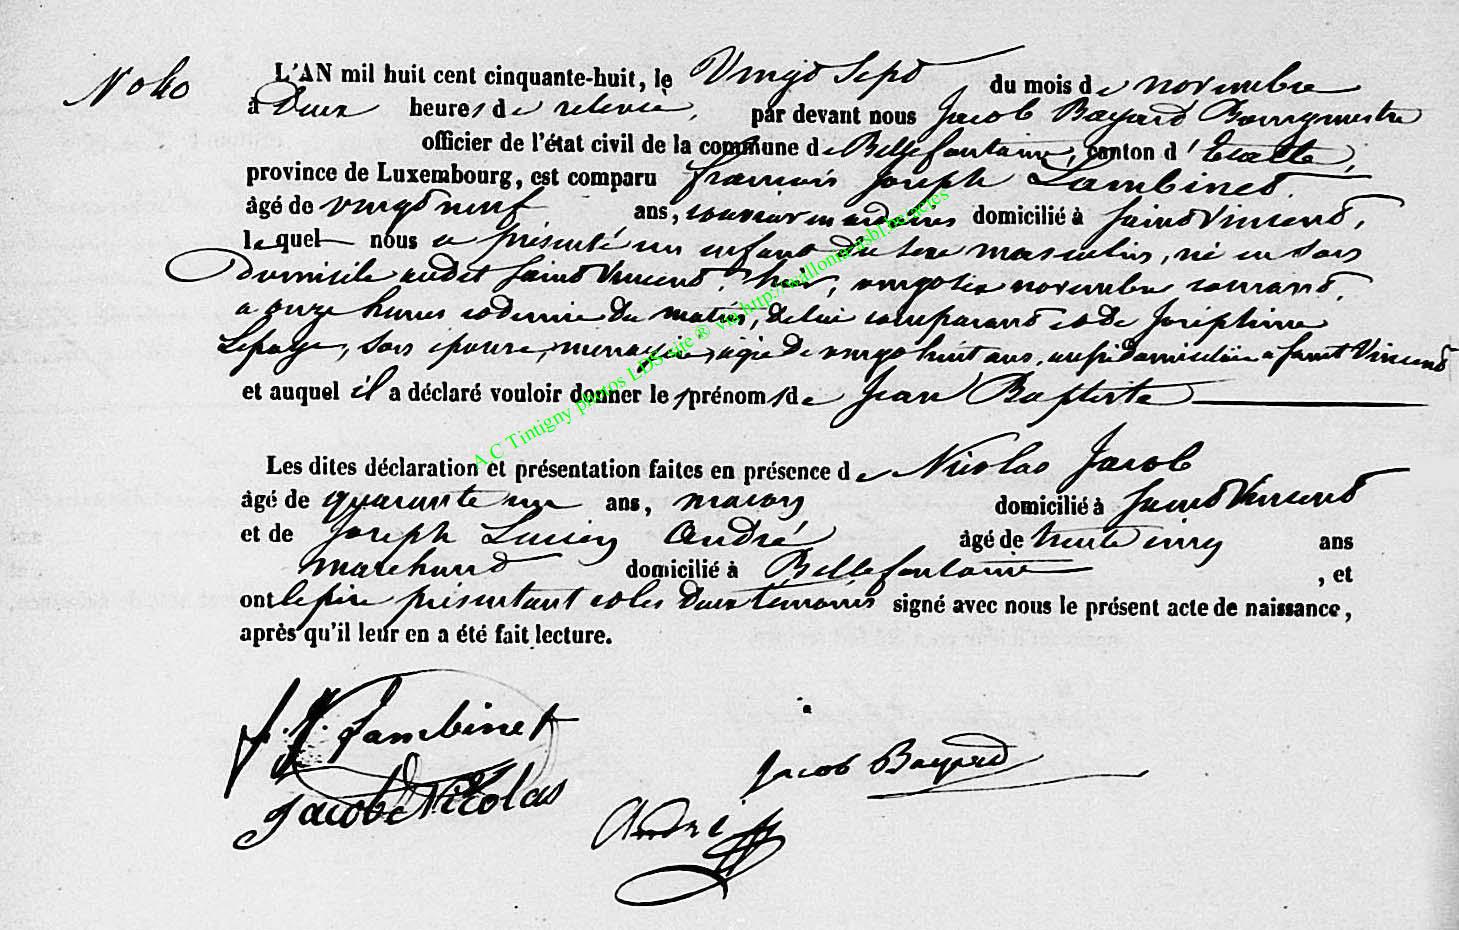 No 40
L'AN mil huit cent cinquante-huit, le Vingt Sept du mois de novembre
à Deux heures de relevée, par devant nous Jacob Bayard Bourgmestre
officier de l'état civil de la commune de Bellefontaine, canton d'Etalle,
province de Luxembourg, est comparu françois Joseph Lambinet
âgé de vingt neuf ans, domicilié à Saint Vincent,
lequel nous a présenté un enfant du sexe masculin, né en son
domicile audit Saint Vincent, hier, vingt six novembre courant,
a onze heures et demie du matin, de lui comparant et de Joséphine
Lepage, son épouse, menagère, agée de vingt huit ans, aussi domiciliée a Saint Vincent
et auquel il a déclaré vouloir donner les prénoms de Jean Baptiste
Les dites déclaration et présentation faites en présence de Nicolas Jacob
âgé de quarante un ans, maçon domicilié à Saint Vincent
et de Joseph Lucien André âgé de trente cinq ans
marchand domicilié à Bellefontaine, et
ont le père présentant et les deux temoins signé avec nous le présent acte de naissance,
après qu'il leur en a été fait lecture.
f. J. Lambinet
Jacob Bayard
Jacob Nicolas
André
A.C Tintigny photos LDS site ® via http://wallonia-asbl.be/actes